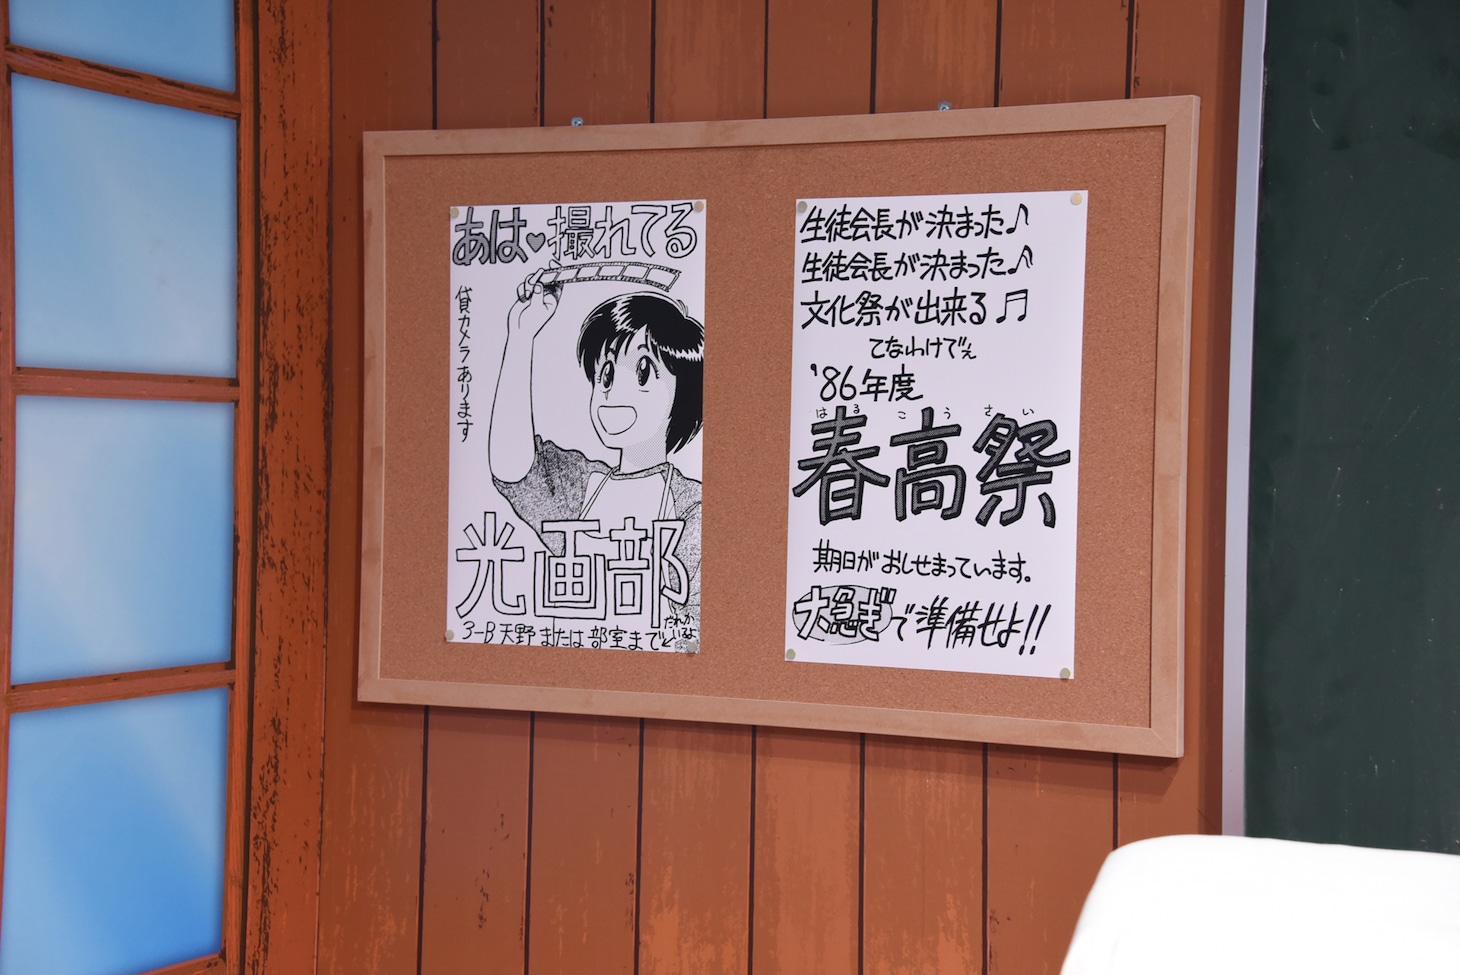 あは♥撮れてる
貸カメラあります
光画部
3-B天野または部室まで
だれか
いるよ
生徒会長が決まった♪
生徒会長が決まった♪
文化祭が出来る♫
てなわけでぇ
'86年度
はるこうさい
春高祭
期日がおしせまっています。
大急ぎで準備せよ!!